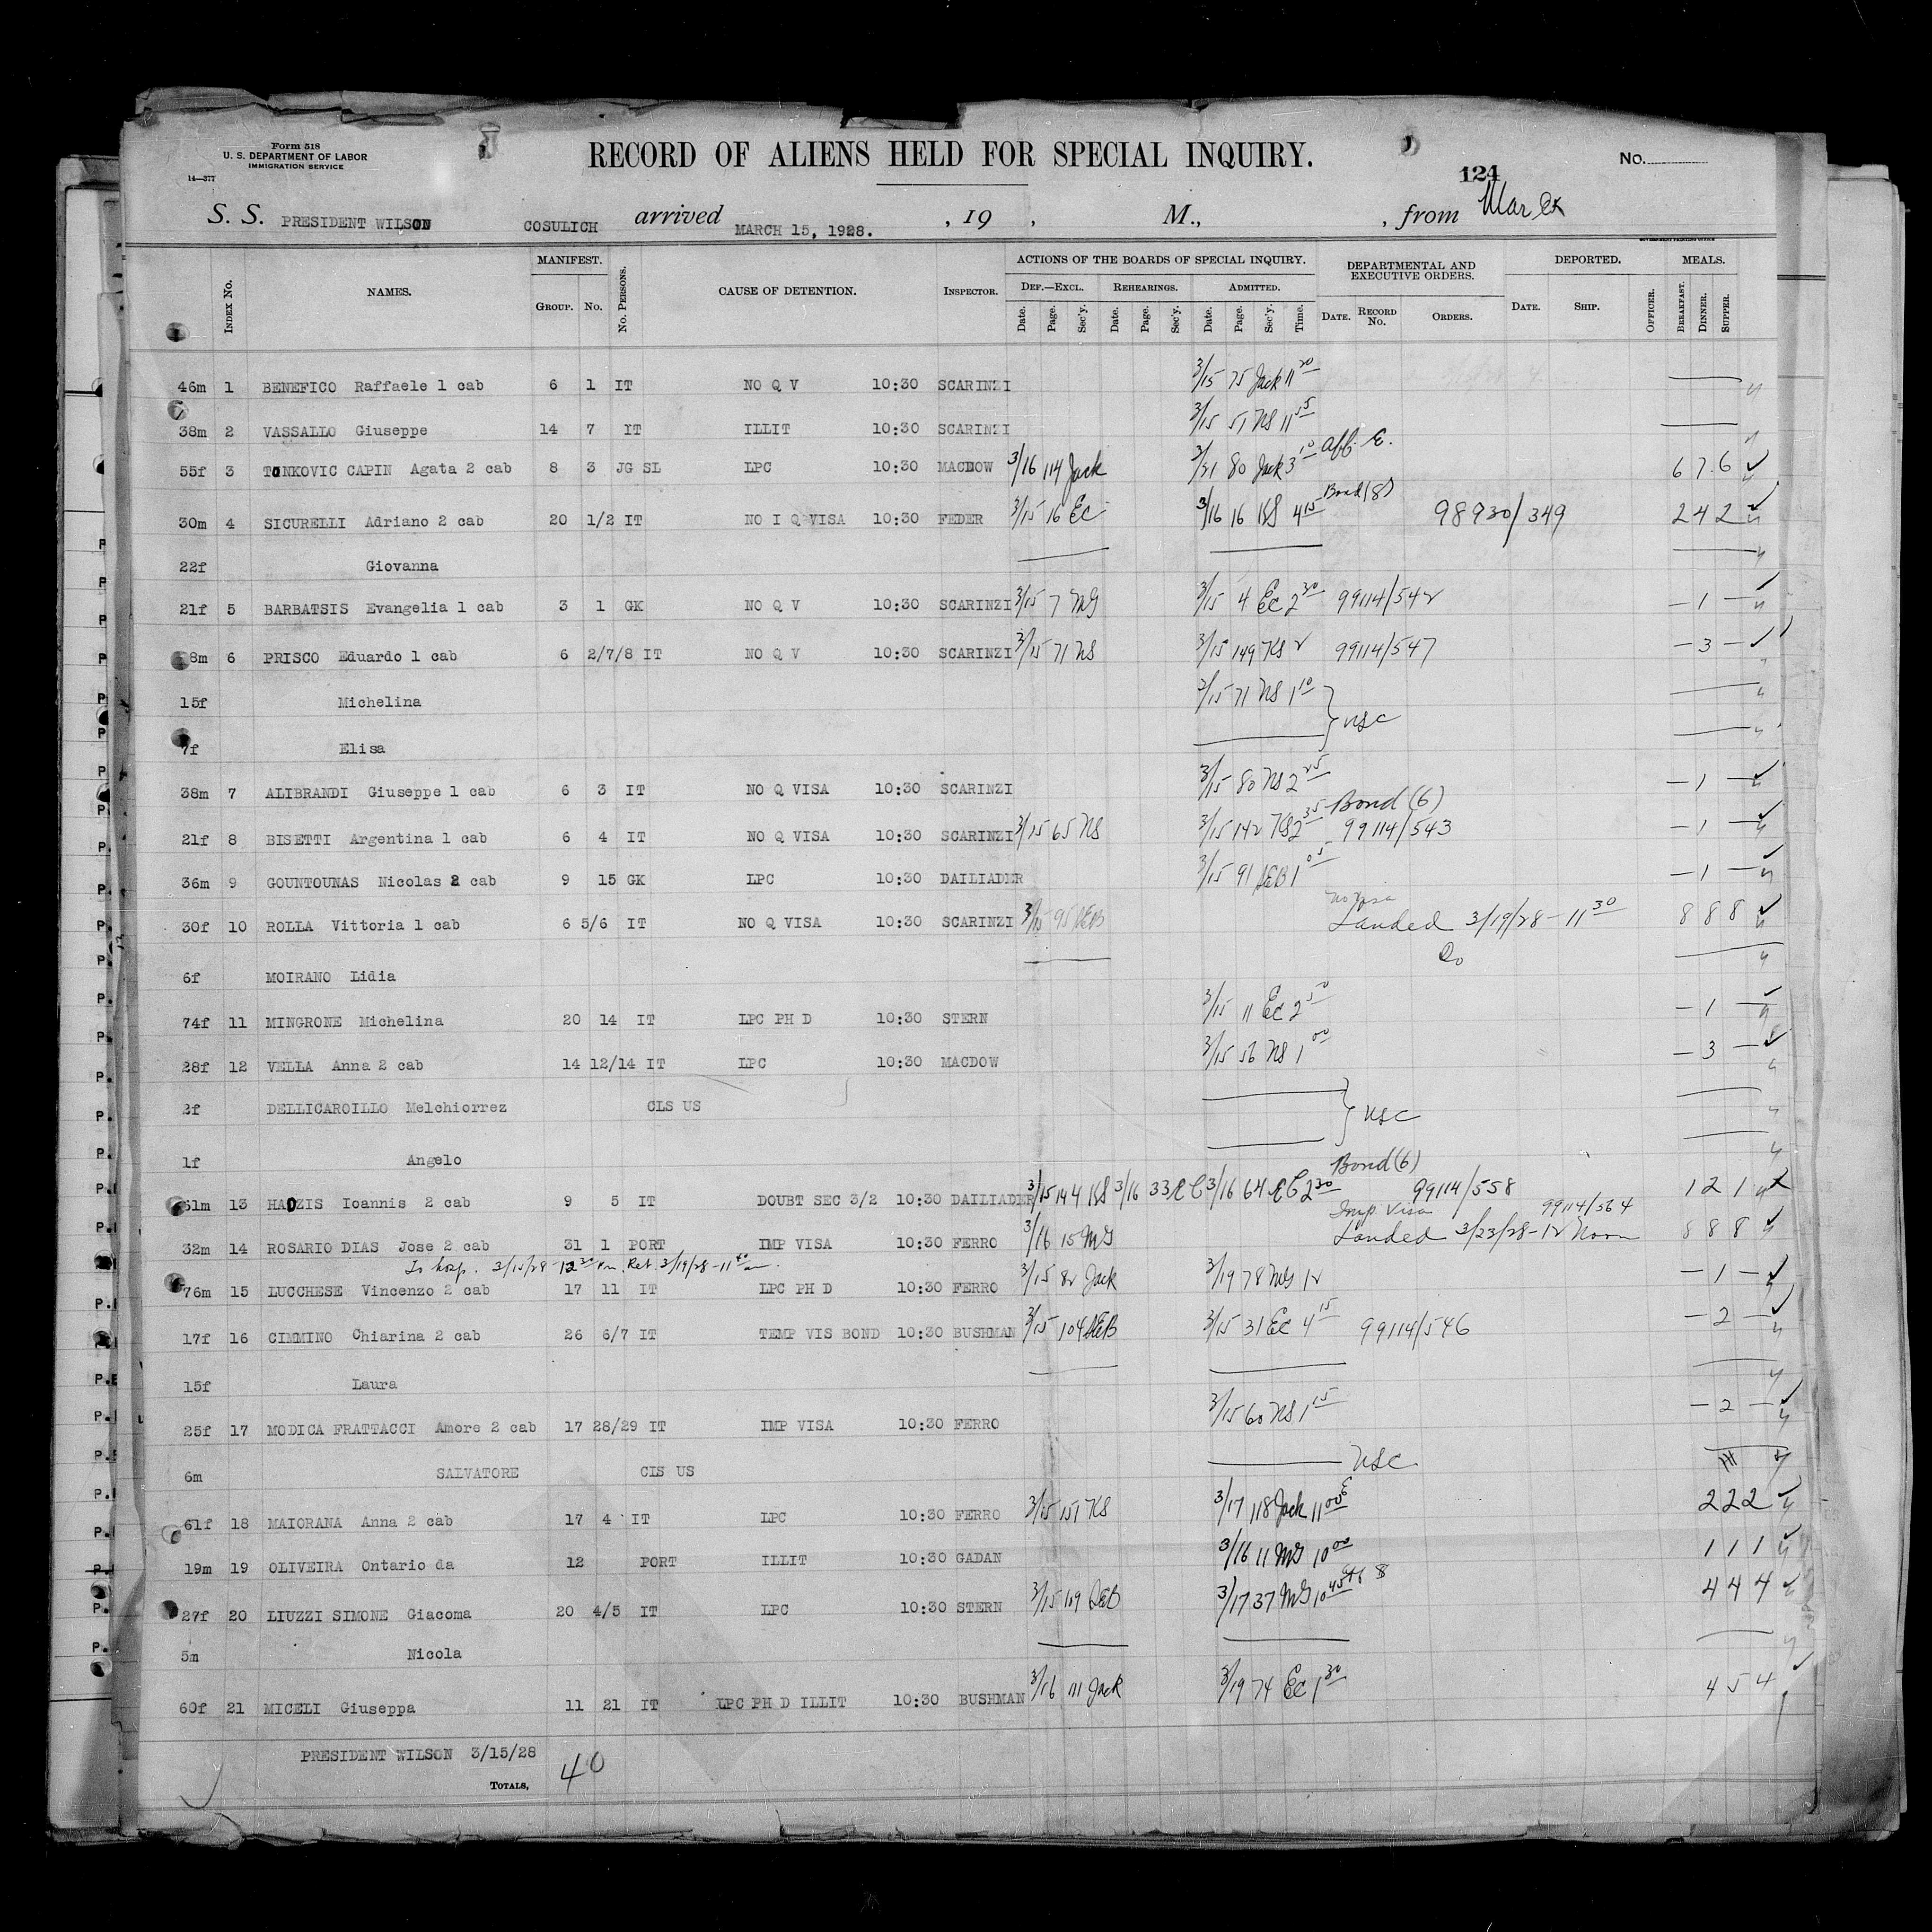 Form 518
U. S. DEPARTMENT OF LABOR
IMMIGRATION SERVICE
14—377
RECORD OF ALIENS HELD FOR SPECIAL INQUIRY.
124
No.
S. S. PRESIDENT WILSON COSULICH arrived MARCH 15, 1928. , 19 , M., , from
GOVERNMENT PRINTING OFFICE
Index No. NAMES. MANIFEST. Group. No. No. Persons. CAUSE OF DETENTION. Inspector. ACTIONS OF THE BOARDS OF SPECIAL INQUIRY. DEPARTMENTAL AND EXECUTIVE ORDERS. DEPORTED. MEALS.
Def.—Excl. Rehearings. Admitted.
Date. Page. Sec'y. Date. Page. Sec'y. Date. Page. Sec'y. Time. Date. Record No. Orders. Date. Ship. Officer. Breakfast. Dinner. Supper.
46m 1 BENEFICO Raffaele 1 cab 6 1 IT NO Q V 10:30 SCARINZI 3/15 75 Jack 11 20
38m 2 VASSALLO Giuseppe 14 7 IT ILLIT 10:30 SCARINZI 3/15 51 NS 11 55
55f 3 TONKOVIC CAPIN Agata 2 cab 8 3 JG SL LPC 10:30 MACDOW 3/16 114 Jack 3/21 80 Jack 3 10 6 7 6
30m 4 SICURELLI Adriano 2 cab 20 1/2 IT NO I Q VISA 10:30 FEDER 3/15 16 EC 3/16 16 4 15 Bond (8) 98930/349 2 4 2
22f Giovanna
21f 5 BARBATSIS Evangelia 1 cab 3 1 GK NO Q V 10:30 SCARINZI 3/15 7 MG 3/15 4 EC 2 30 99114/542 — 1 —
8m 6 PRISCO Eduardo 1 cab 6 2/7/8 IT NO Q V 10:30 SCARINZI 3/15 71 NS 3/15 149 KS 2 99114/547 — 3 —
15f Michelina 3/15 71 NS 1 10 USC
7f Elisa
38m 7 ALIBRANDI Giuseppe 1 cab 6 3 IT NO Q VISA 10:30 SCARINZI 3/15 80 NS 2 25 — 1 —
21f 8 BISETTI Argentina 1 cab 6 4 IT NO Q VISA 10:30 SCARINZI 3/15 65 NS 3/15 142 KS 2 35 Bond (6) 99114/543 — 1 —
36m 9 GOUNTOUNAS Nicolas 2 cab 9 15 GK LPC 10:30 DAILIADER 3/15 91 AEB 1 05 — 1 —
30f 10 ROLLA Vittoria 1 cab 6 5/6 IT NO Q VISA 10:30 SCARINZI 3/15 95 AEB No Visa Landed 3/19/28 - 11 30 8 8 8
6f MOIRANO Lidia Do
74f 11 MINGRONE Michelina 20 14 IT LPC PH D 10:30 STERN 3/15 11 EC 2 50 — 1 —
28f 12 VELLA Anna 2 cab 14 12/14 IT LPC 10:30 MACDOW 3/15 56 NS 1 00 — 3 —
2f DELLICAROILLO Melchiorrez CLS US USC
1f Angelo
51m 13 HADZIS Ioannis 2 cab 9 5 IT DOUBT SEC 3/2 10:30 DAILIADER 3/15 144 3/16 33 EC 3/16 64 EC 2 30 Bond (6) 99114/558 1 2 1
32m 14 ROSARIO DIAS Jose 2 cab 31 1 PORT IMP VISA 10:30 FERRO 3/16 15 MG Imp Visa 99114/564 Landed 3/23/28 - 12 Noon 8 8 8
To hosp. 3/15/28 - 12 30 Pm. Ret. 3/19/28 - 11 40 am.
76m 15 LUCCHESE Vincenzo 2 cab 17 11 IT LPC PH D 10:30 FERRO 3/15 82 Jack 3/19 78 MG 12 — 1 —
17f 16 CIMMINO Chiarina 2 cab 26 6/7 IT TEMP VIS BOND 10:30 BUSHMAN 3/15 104 AEB 3/15 31 EC 4 15 99114/546 — 2 —
15f Laura
25f 17 MODICA FRATTACCI Amore 2 cab 17 28/29 IT IMP VISA 10:30 FERRO 3/15 60 NS 1 15 — 2 —
6m SALVATORE CIS US USC
61f 18 MAIORANA Anna 2 cab 17 4 IT LPC 10:30 FERRO 3/15 151 KS 3/17 118 Jack 11 00 2 2 2
19m 19 OLIVEIRA Ontario da 12 PORT ILLIT 10:30 GADAN 3/16 11 MG 10 00 1 1 1
27f 20 LIUZZI SIMONE Giacoma 20 4/5 IT LPC 10:30 STERN 3/15 109 AEB 3/17 37 MG 10 45 4 4 4
5m Nicola
60f 21 MICELI Giuseppa 11 21 IT LPC PH D ILLIT 10:30 BUSHMAN 3/16 111 Jack 3/19 74 EC 1 30 4 5 4
PRESIDENT WILSON 3/15/28
Totals, 40